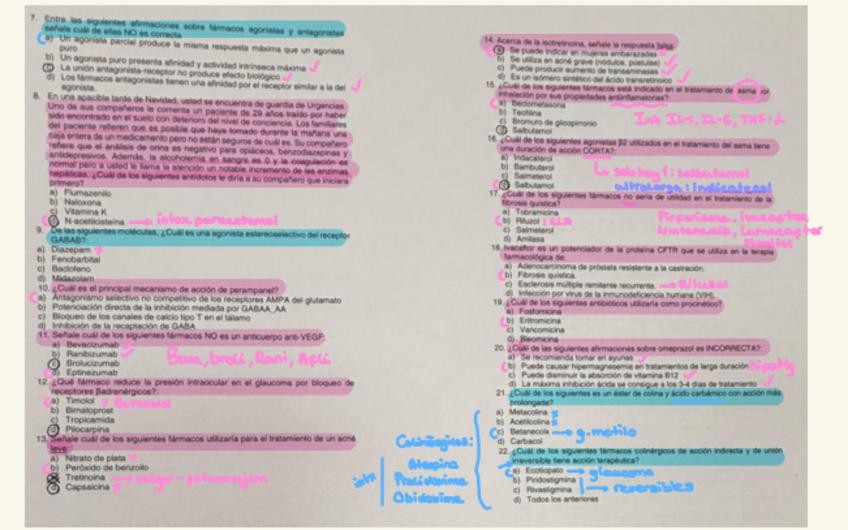 7. Entre las siguientes afirmaciones sobre fármacos agonistas y antagonistas
señala cuál de ellas NO es correcta
a) Un agonista parcial produce la misma respuesta máxima que un agonista
puro
b) Un agonista puro presenta afinidad y actividad intrínseca máxima
c) La unión antagonista-receptor no produce efecto biológico
d) Los fármacos antagonistas tienen una afinidad por el receptor similar a la del
agonista.
8. En una apacible tarde de Navidad, usted se encuentra de guardia de Urgencias.
Uno de sus compañeros le comenta un paciente de 29 años traído por haber
sido encontrado en el suelo con deterioro del nivel de conciencia. Los familiares
del paciente refieren que es posible que haya tomado durante la mañana una
caja entera de un medicamento pero no están seguros de cuál es. Su compañero
refiere que el análisis de orina es negativo para opiáceos, benzodiazepinas y
antidepresivos. Además, la alcoholemia en sangre es 0 y la coagulación es
normal pero a usted le llama la atención un notable incremento de las enzimas
hepáticas. ¿Cuál de los siguientes antídotos le diría a su compañero que iniciara
primero?
a) Flumazenilo
b) Naloxona
c) Vitamina K
d) N-acetilcisteína → intox paracetamol
9. De las siguientes moléculas, ¿Cuál es una agonista estereoselectivo del receptor
GABAB?:
a) Diazepam
b) Fenobarbital
c) Baclofeno
d) Midazolam
10. ¿Cuál es el principal mecanismo de acción de perampanel?
a) Antagonismo selectivo no competitivo de los receptores AMPA del glutamato
b) Potenciación directa de la inhibición mediada por GABAA_AA
c) Bloqueo de los canales de calcio tipo T en el tálamo
d) Inhibición de la recaptación de GABA
11. Señale cuál de los siguientes fármacos NO es un anticuerpo anti-VEGF:
a) Bevacizumab
b) Ranibizumab
c) Brolucizumab
d) Eptinezumab
Beva, broli, Rani, Afli
12. ¿Qué fármaco reduce la presión intraocular en el glaucoma por bloqueo de
receptores βadrenérgicos?:
a) Timolol
b) Bimatoprost
c) Tropicamida
d) Pilocarpina
13. Señale cuál de los siguientes fármacos utilizaría para el tratamiento de un acné
leve:
a) Nitrato de plata
b) Peróxido de benzoilo
c) Tretinoina
d) Capsaicina
14. Acerca de la isotretinoina, señale la respuesta falsa:
a) Se puede indicar en mujeres embarazadas
b) Se utiliza en acné grave (nódulos, pústulas)
c) Puede producir aumento de transaminasas
d) Es un isómero sintético del ácido transretinoico
15. ¿Cuál de los siguientes fármacos está indicado en el tratamiento de asma por
inhalación por sus propiedades antiinflamatorias?:
a) Beclometasona
b) Teofilina
c) Bromuro de glicopirronio
d) Salbutamol
Inh IL-1, IL-6, TNF-α
16. ¿Cuál de los siguientes agonistas β2 utilizados en el tratamiento del asma tiene
una duración de acción CORTA?:
a) Indacaterol
b) Bambuterol
c) Salmeterol
d) Salbutamol
solo hay 1: salbutamol
ultralarga: Indacaterol
17. ¿Cuál de los siguientes fármacos no sería de utilidad en el tratamiento de la
fibrosis quística?
a) Tobramicina
b) Riluzol: ELA
c) Salmeterol
d) Amilasa
18. Ivacaftor es un potenciador de la proteína CFTR que se utiliza en la terapia
farmacológica de:
a) Adenocarcinoma de próstata resistente a la castración.
b) Fibrosis quística.
c) Esclerosis múltiple remitente recurrente. → Riluzol
d) Infección por virus de la inmunodeficiencia humana (VIH).
19. ¿Cuál de los siguientes antibióticos utilizaría como procinético?
a) Fosfomicina
b) Eritromicina
c) Vancomicina
d) Bleomicina
20. ¿Cuál de las siguientes afirmaciones sobre omeprazol es INCORRECTA?:
a) Se recomienda tomar en ayunas
b) Puede causar hipermagnesemia en tratamientos de larga duración hipoMg
c) Puede disminuir la absorción de vitamina B12
d) La máxima inhibición ácida se consigue a los 3-4 días de tratamiento
21. ¿Cuál de los siguientes es un éster de colina y ácido carbámico con acción más
prolongada?
a) Metacolina
b) Acetilcolina
c) Betanecola → g. motilo
d) Carbacol
22. ¿Cuál de los siguientes fármacos colinérgicos de acción indirecta y de unión
irreversible tiene acción terapéutica?
a) Ecotiopato → glaucoma
b) Piridostigmina
c) Rivastigmina → reversibles
d) Todos los anteriores
Colinérgicos:
intx
Atropina
Pralidoxima
Obidoxima